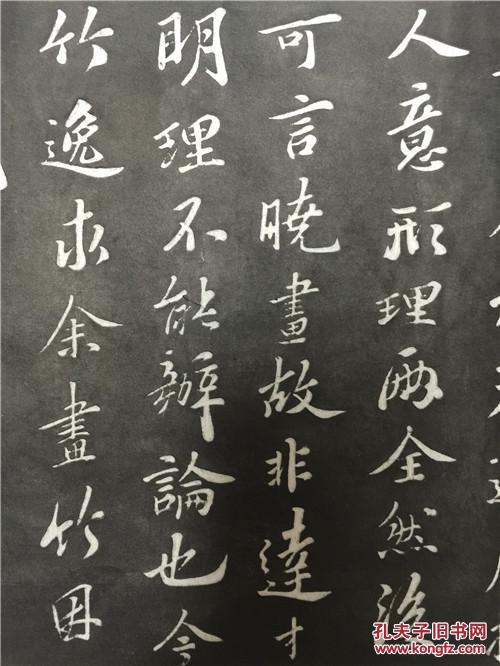 人意形理兩全然後
可言曉畫故非達才
明理不能辦論也今
竹逸求余畫竹因
孔夫子旧书网
www.kongfz.com